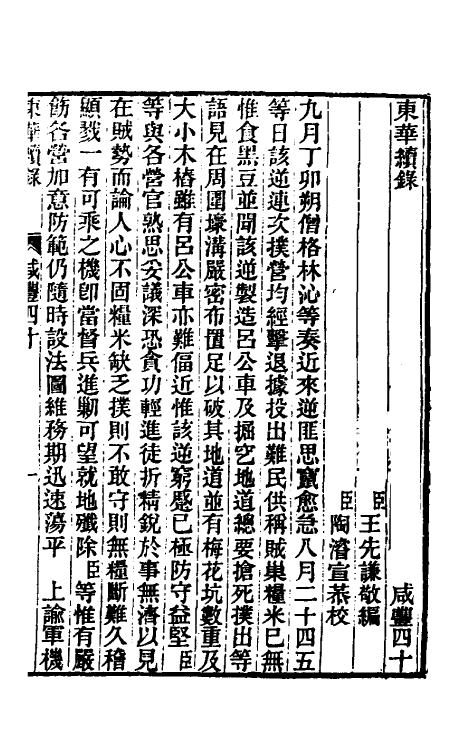 東華續錄　咸豐四十
臣王先謙敬編
臣陶濬宣恭校
九月丁卯朔僧格林沁等奏近來逆匪思竄愈急八月二十四五
等日該逆連次撲營均經擊退據投出難民供稱賊巢糧米已無
惟食黑豆並聞該逆製造呂公車及掘窆地道總要搶死撲出等
語見在周圍壕溝嚴密布置足以破其地道並有梅花坑數重及
大小木樁雖有呂公車亦難偪近惟該逆窮蹙已極防守益堅臣
等與各營官熟思妥議深恐貪功輕進徒折精銳於事無濟以見
在賊勢而論人心不固糧米缺乏撲則不敢守則無糧斷難久稽
顯戮一有可乘之機卽當督兵進剿可望就地殲除臣等惟有嚴
飭各營加意防範仍隨時設法圖維務期迅速蕩平　上諭軍機
東華續錄　咸豐四十　一